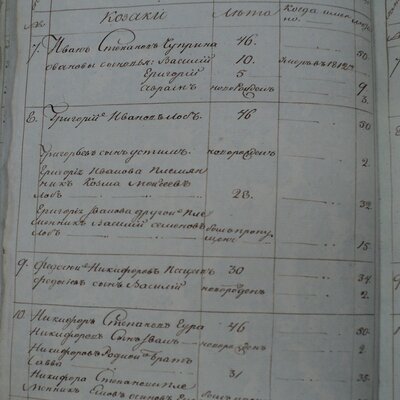 Козаки Лѣта Когда
7. Иванъ Степановъ Суприна 46. 50.
Ивановы сыновья: Василий 10. умеръ въ 1812мъ
Григорий 5 9
Авраамъ новорожденъ 3.
8. Григорий Ивановъ Лобъ. 46 50
Григорьевъ сынъ Устимъ. новорожденъ 2.
Григорія Иванова племян
никъ Козма Моисеевъ
Лобъ 28. 32.
Григорія Иванова другой пле
менникъ Василий Семеновъ
Лобъ былъ пропу
щенъ 15
9. Федосий Никифоровъ 30 34.
Федосиевъ сынъ Василий новорожденъ 2.
10. Никифоръ Степановъ 46 50.
Никифоровъ сынъ Иванъ новорожденъ 2
Никифоровъ родной братъ
Савва 31 35.
Никифора Степанова пле